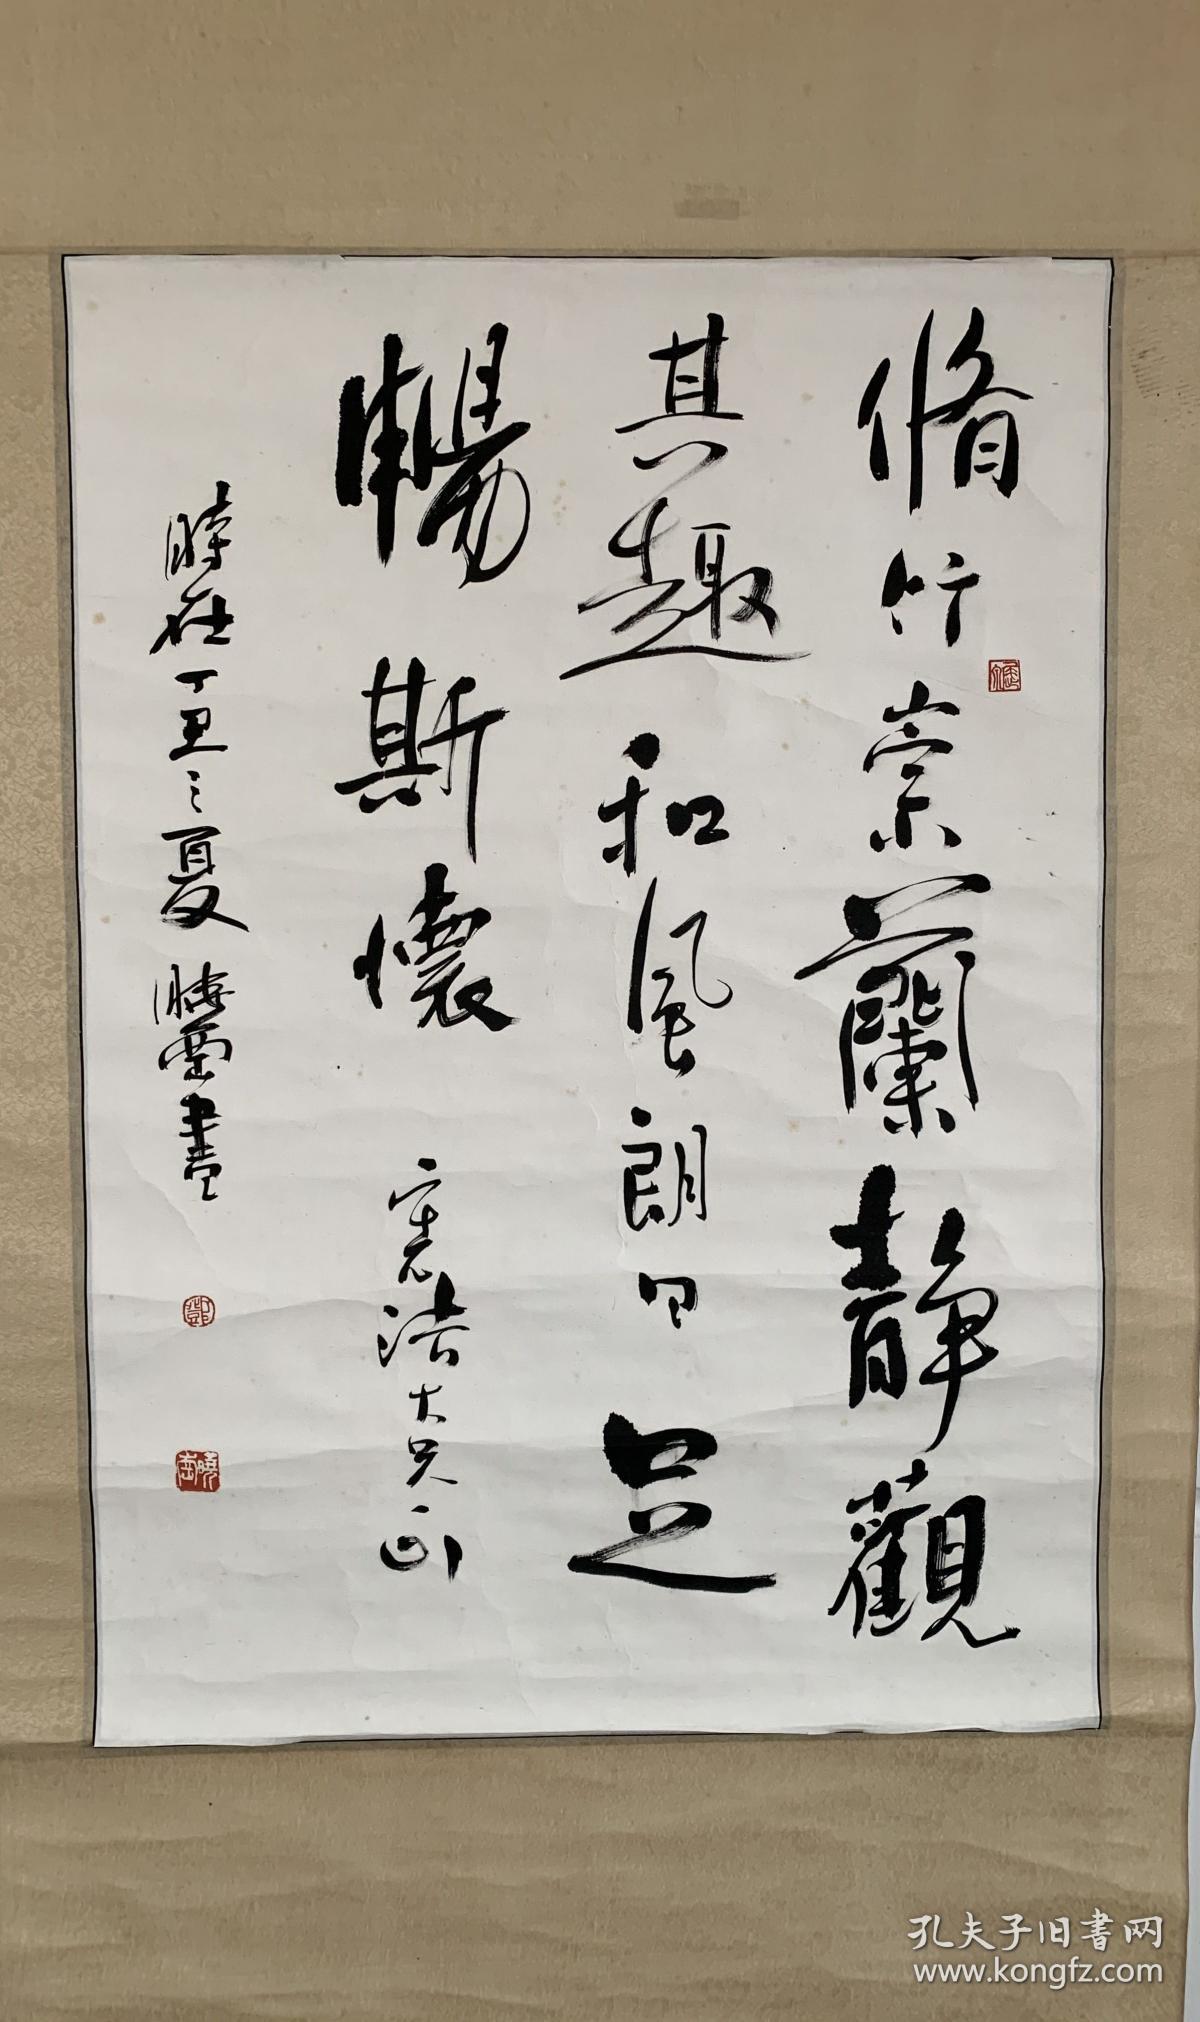 脩竹崇蘭靜觀
其趣和風朗日足
暢斯懷
憲浩大兄正
時在丁丑之夏曉雲書
孔夫子旧书网
www.kongfz.com